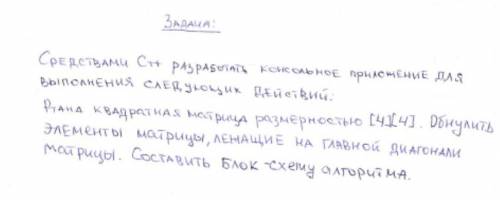 ЗАДАЧА:
СРЕДСТВАМИ С++ РАЗРАБОТАТЬ КОНСОЛЬНОЕ ПРИЛОЖЕНИЕ ДЛЯ
ВЫПОЛНЕНИЯ СЛЕДУЮЩИХ ДЕЙСТВИЙ.
КВАДРАТНАЯ МАТРИЦА РАЗМЕРНОСТЬЮ [4][4]. ОБНУЛИТЬ
ЭЛЕМЕНТЫ МАТРИЦЫ, ЛЕЖАЩИЕ НА ГЛАВНОЙ ДИАГОНАЛИ
МАТРИЦЫ. СОСТАВИТЬ БЛОК-СХЕМУ АЛГОРИТМА.